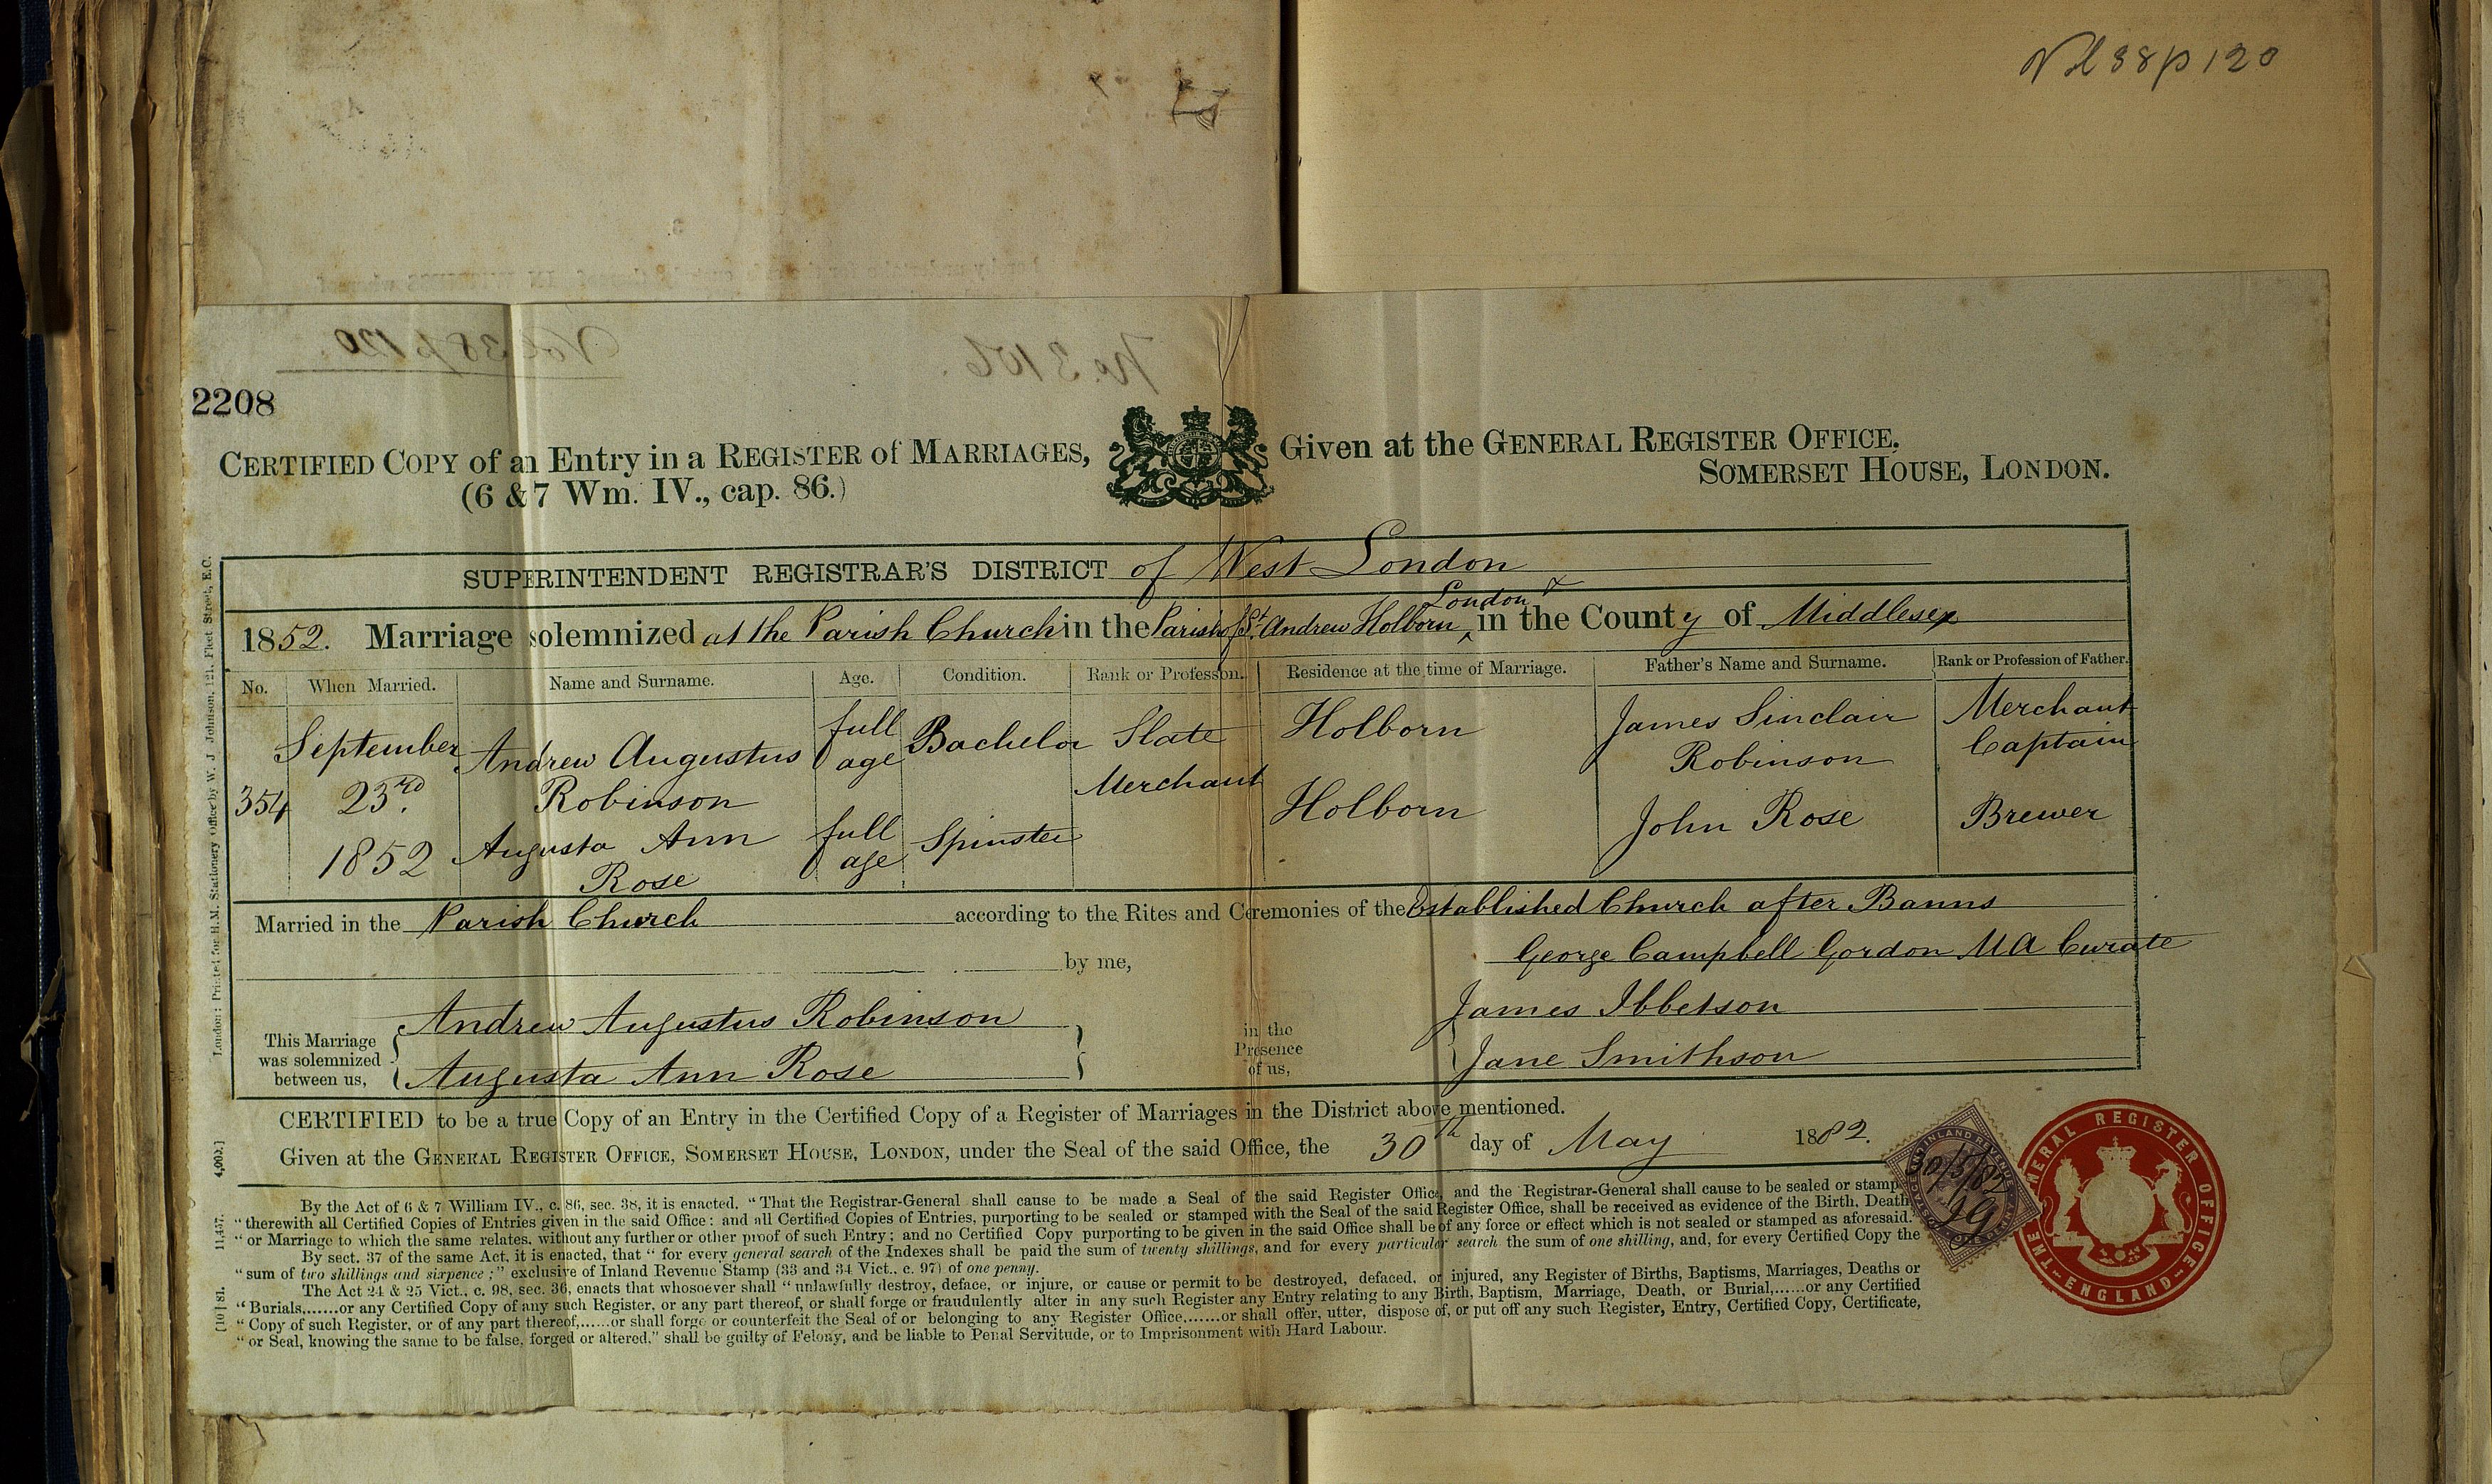 Vol 38 p 120
Vol 38 p 120.
No. 3106.
2208
CERTIFIED COPY of an Entry in a REGISTER of MARRIAGES,
(6 & 7 Wm. IV., cap. 86.)
Given at the GENERAL REGISTER OFFICE,
SOMERSET HOUSE, LONDON.
SUPERINTENDENT REGISTRAR'S DISTRICT of West London
London &
1852. Marriage solemnized at the Parish Church in the Parish of St. Andrew Holborn ^ in the County of Middlesex
No. When Married. Name and Surname. Age. Condition. Rank or Profession. Residence at the time of Marriage. Father's Name and Surname. Rank or Profession of Father.
354 September 23rd. 1852
Andrew Augustus Robinson full age Bachelor Slate Merchant Holborn James Sinclair Robinson Merchant Captain
Augusta Ann Rose full age Spinster Holborn John Rose Brewer
Married in the Parish Church according to the Rites and Ceremonies of the Established Church after Banns
by me, George Campbell Gordon MA Curate
This Marriage was solemnized between us,
Andrew Augustus Robinson
Augusta Ann Rose
in the Presence of us,
James Ibbetson
Jane Smithson
CERTIFIED to be a true Copy of an Entry in the Certified Copy of a Register of Marriages in the District above mentioned.
Given at the GENERAL REGISTER OFFICE, SOMERSET HOUSE, LONDON, under the Seal of the said Office, the 30th day of May 1882.
By the Act of 6 & 7 William IV., c. 86, sec. 38, it is enacted, "That the Registrar-General shall cause to be made a Seal of the said Register Office, and the Registrar-General shall cause to be sealed or stamped
"therewith all Certified Copies of Entries given in the said Office; and all Certified Copies of Entries, purporting to be sealed or stamped with the Seal of the said Register Office, shall be received as evidence of the Birth, Death
"or Marriage to which the same relates, without any further or other proof of such Entry; and no Certified Copy purporting to be given in the said Office shall be of any force or effect which is not sealed or stamped as aforesaid."
By sect. 37 of the same Act, it is enacted, that "for every general search of the Indexes shall be paid the sum of twenty shillings, and for every particular search the sum of one shilling, and, for every Certified Copy the
"sum of two shillings and sixpence;" exclusive of Inland Revenue Stamp (33 and 34 Vict., c. 97) of one penny.
The Act 24 & 25 Vict., c. 98, sec. 36, enacts that whosoever shall "unlawfully destroy, deface, or injure, or cause or permit to be destroyed, defaced, or injured, any Register of Births, Baptisms, Marriages, Deaths or
"Burials,......or any Certified Copy of any such Register, or any part thereof, or shall forge or fraudulently alter in any such Register any Entry relating to any Birth, Baptism, Marriage, Death, or Burial,......or any Certified
"Copy of such Register, or of any part thereof,......or shall forge or counterfeit the Seal of or belonging to any Register Office,......or shall offer, utter, dispose of, or put off any such Register, Entry, Certified Copy, Certificate,
"or Seal, knowing the same to be false, forged or altered," shall be guilty of Felony, and be liable to Penal Servitude, or to Imprisonment with Hard Labour.
London: Printed for H.M. Stationery Office by W. J. Johnson, 121, Fleet Street, E.C.
[10 | 81. 11,457. 4,002.]
INLAND REVENUE
30/5/82
THE GENERAL REGISTER OFFICE
ENGLAND